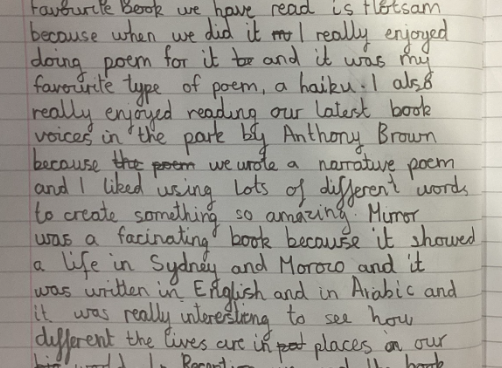 favourite Book we have read is flotsam
because when we did it I really enjoyed
doing poem for it and it was my
favourite type of poem, a haiku. I also
really enjoyed reading our latest book
voices in the park by Anthony Brown
because the poem we wrote a narrative poem
and I liked using lots of different words
to create something so amazing. Mirror
was a facinating book because it showed
a life in Sydney and Moroco and it
was written in English and in Arabic and
it was really interesting to see how
different the lives are in places on our